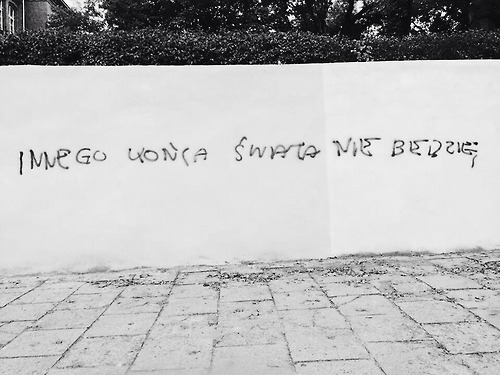 INNEGO KOŃCA ŚWIATA NIE BĘDZIE